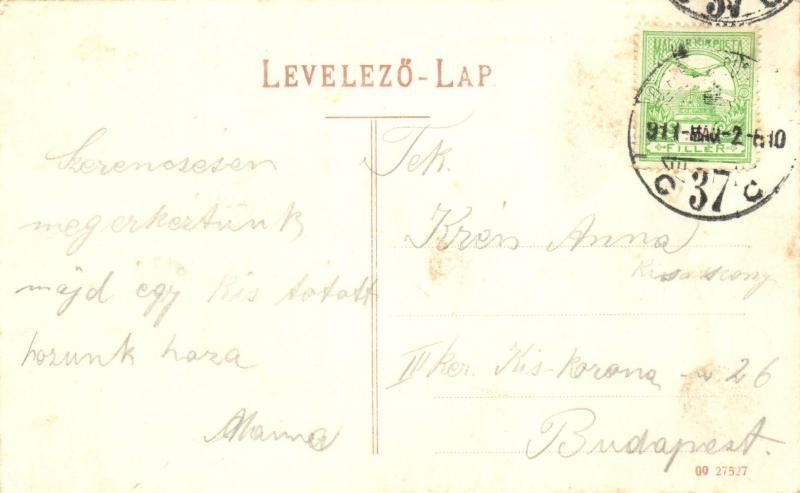 LEVELEZŐ-LAP
MAGYAR KIR. POSTA
FILLÉR
911-MÁR-2-
37
C
Szerencsésen
megerkeztünk
majd egy kis totott
hozunk haza
Mama
Tek.
Krén Anna
kisasszony
III ker. Kis-korona - u 26
Budapest.
09 27527